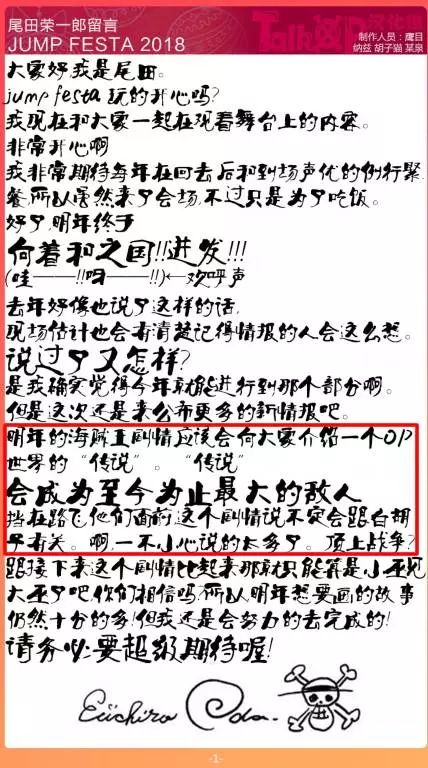 尾田荣一郎留言
JUMP FESTA 2018
TalkOP汉化组
制作人员:鹰目
纳兹 胡子猫 某泉
大家好我是尾田。
jump festa 玩的开心吗?
我现在和大家一起在观看舞台上的内容。
非常开心啊
我非常期待每年在回去后和到场声优的例行聚
餐,所以虽然来了会场,不过只是为了吃饭。
好了,明年终于
向着和之国!!进发!!!
(哇———!!呀——!!)←欢呼声
去年好像也说了这样的话,
现场估计也会有清楚记得情报的人会这么想。
说过了又怎样?
是我确实觉得今年就能进行到那个部分啊。
但是这次还是来公布更多的新情报吧。
明年的海贼王剧情应该会向大家介绍一个OP
世界的“传说”。“传说”
会成为至今为止最大的敌人
挡在路飞他们面前,这个剧情说不定会跟白胡
子有关。啊,一不小心说的太多了。顶上战争?
跟接下来这个剧情比起来那就只能算是小巫见
大巫了吧,你们相信吗,所以明年想要画的故事
仍然十分的多!但我还是会努力的去完成的!
请务必要超级期待喔!
Eiichiro Oda
-1-